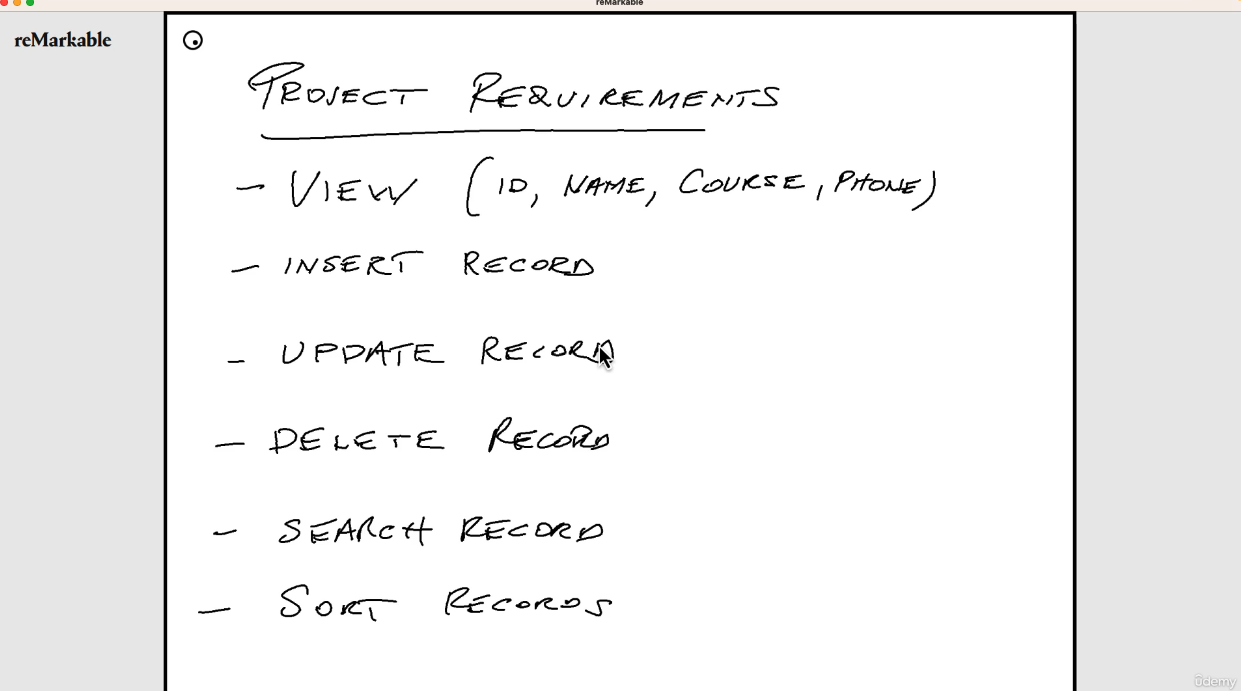 reMarkable
reMarkable
PROJECT REQUIREMENTS
- VIEW (ID, NAME, COURSE, PHONE)
- INSERT RECORD
- UPDATE RECORD
- DELETE RECORD
- SEARCH RECORD
- SORT RECORDS
ûdemy